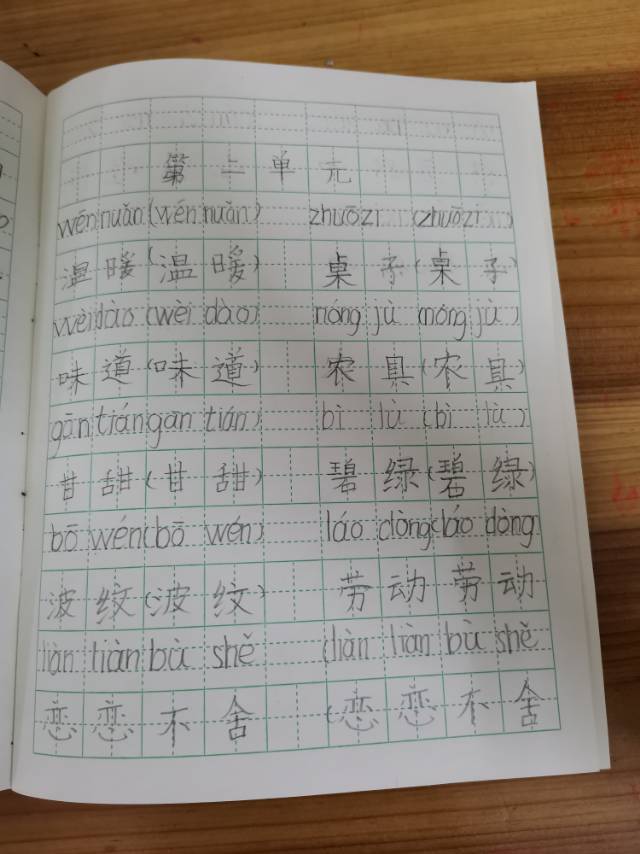 第二单元
wén nuǎn (wén nuǎn) zhuō zi (zhuō zi)
温暖(温暖) 桌子(桌子)
wèi dào (wèi dào) nóng jù (nóng jù)
味道(味道) 农具(农具)
gān tián gan tián) bì lǜ (bì lǜ)
甘甜(甘甜) 碧绿(碧绿)
bō wén (bō wén) láo dòng (láo dòng
波纹(波纹) 劳动 劳动
liàn tiàn bù shě (liàn liàn bù shě
恋恋不舍 (恋恋不舍